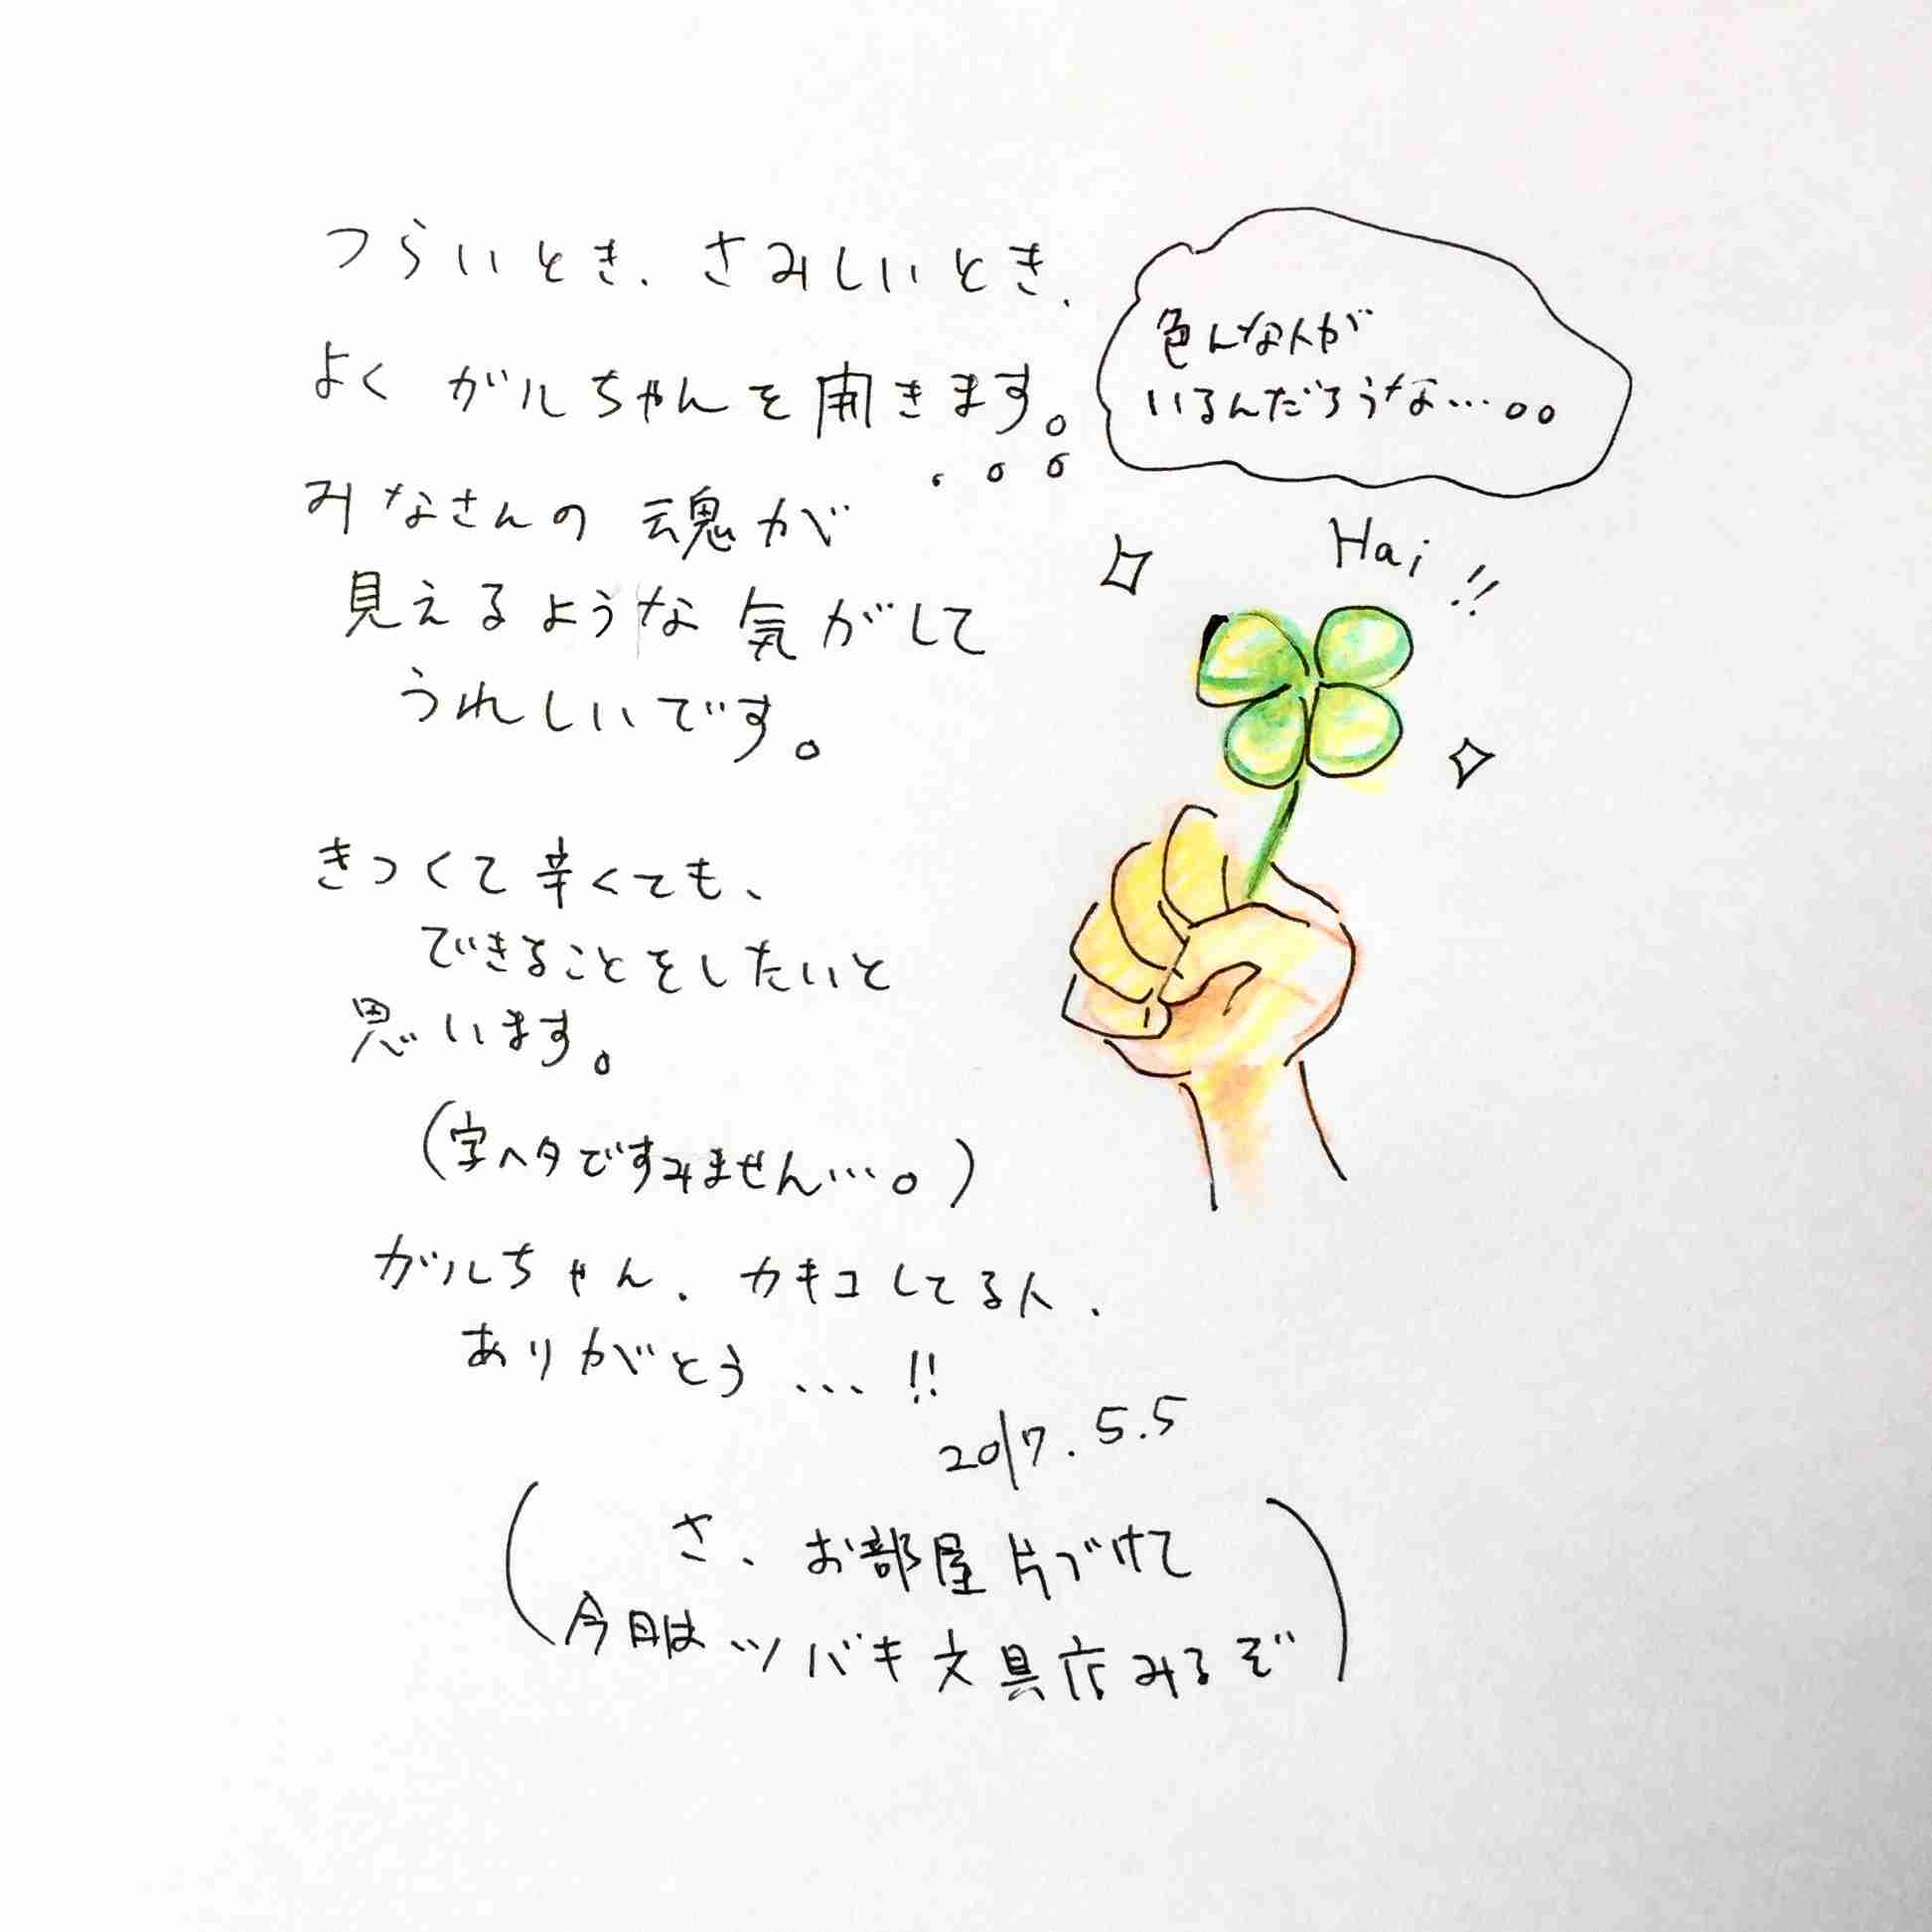 つらいとき、さみしいとき、
よくガルちゃんを開きます。
みなさんの魂が
見えるような気がして
うれしいです。
色んな人が
いるんだろうな…。。
Hai!!
きつくて辛くても、
できることをしたいと
思います。
(字ヘタですみません…。)
ガルちゃん、カキコしてる人、
ありがとう…!!
2017.5.5
(さ、お部屋片づけて
今日はツバキ文具店みるぞ)